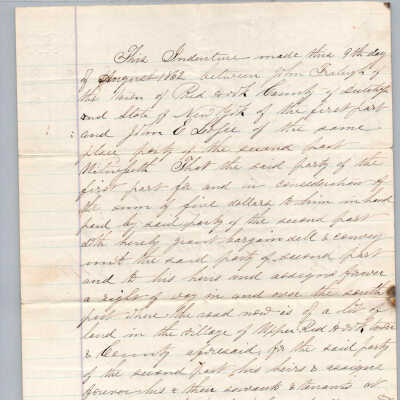 This Indenture made this 9th day
of August 1862 between John
the Town of Red Hook County of Dutchess
and State of New York of the first part
and John E of the same
place party of the second part
Witnesseth That the said party of the
first part for and in consideration of
the sum of five dollars to him in hand
paid by said party of the second part
doth hereby grant bargain sell & convey
unto the said party of second part
and to his heirs and assigns forever
a right of way in and over the south
part where the road now is of a lot of
land in the village of Upper Red Hook
& County aforesaid, for the said party
of the second part, his heirs & assigns
forever his & their servants & tenants at